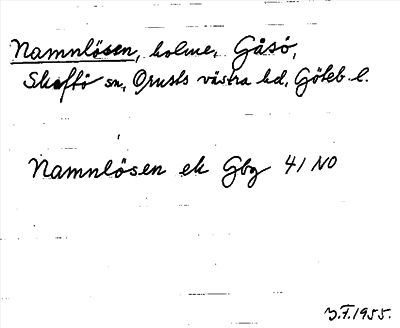 Namnlösen, holme, Gåsö,
Skaftö sn, Orusts västra hd, Göteb. l.
Namnlösen ek Gbg 41 NO
B.F. 1955.